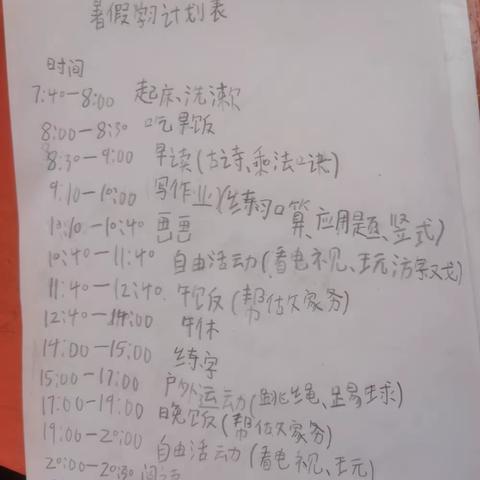 暑假学习计划表
时间
7:40-8:00 起床、洗漱
8:00-8:30 吃早饭
8:30-9:00 早读(古诗、乘法口诀)
9:10-10:00 写作业(练习口算、应用题、竖式)
10:10-10:40 画画
10:40-11:40 自由活动(看电视、玩游戏)
11:40-12:40 午饭(帮做家务)
12:40-14:00 午休
14:00-15:00 练字
15:00-17:00 户外运动(跳绳、踢球)
17:00-19:00 晚饭(帮做家务)
19:00-20:00 自由活动(看电视、玩)
20:00-20:30 阅读